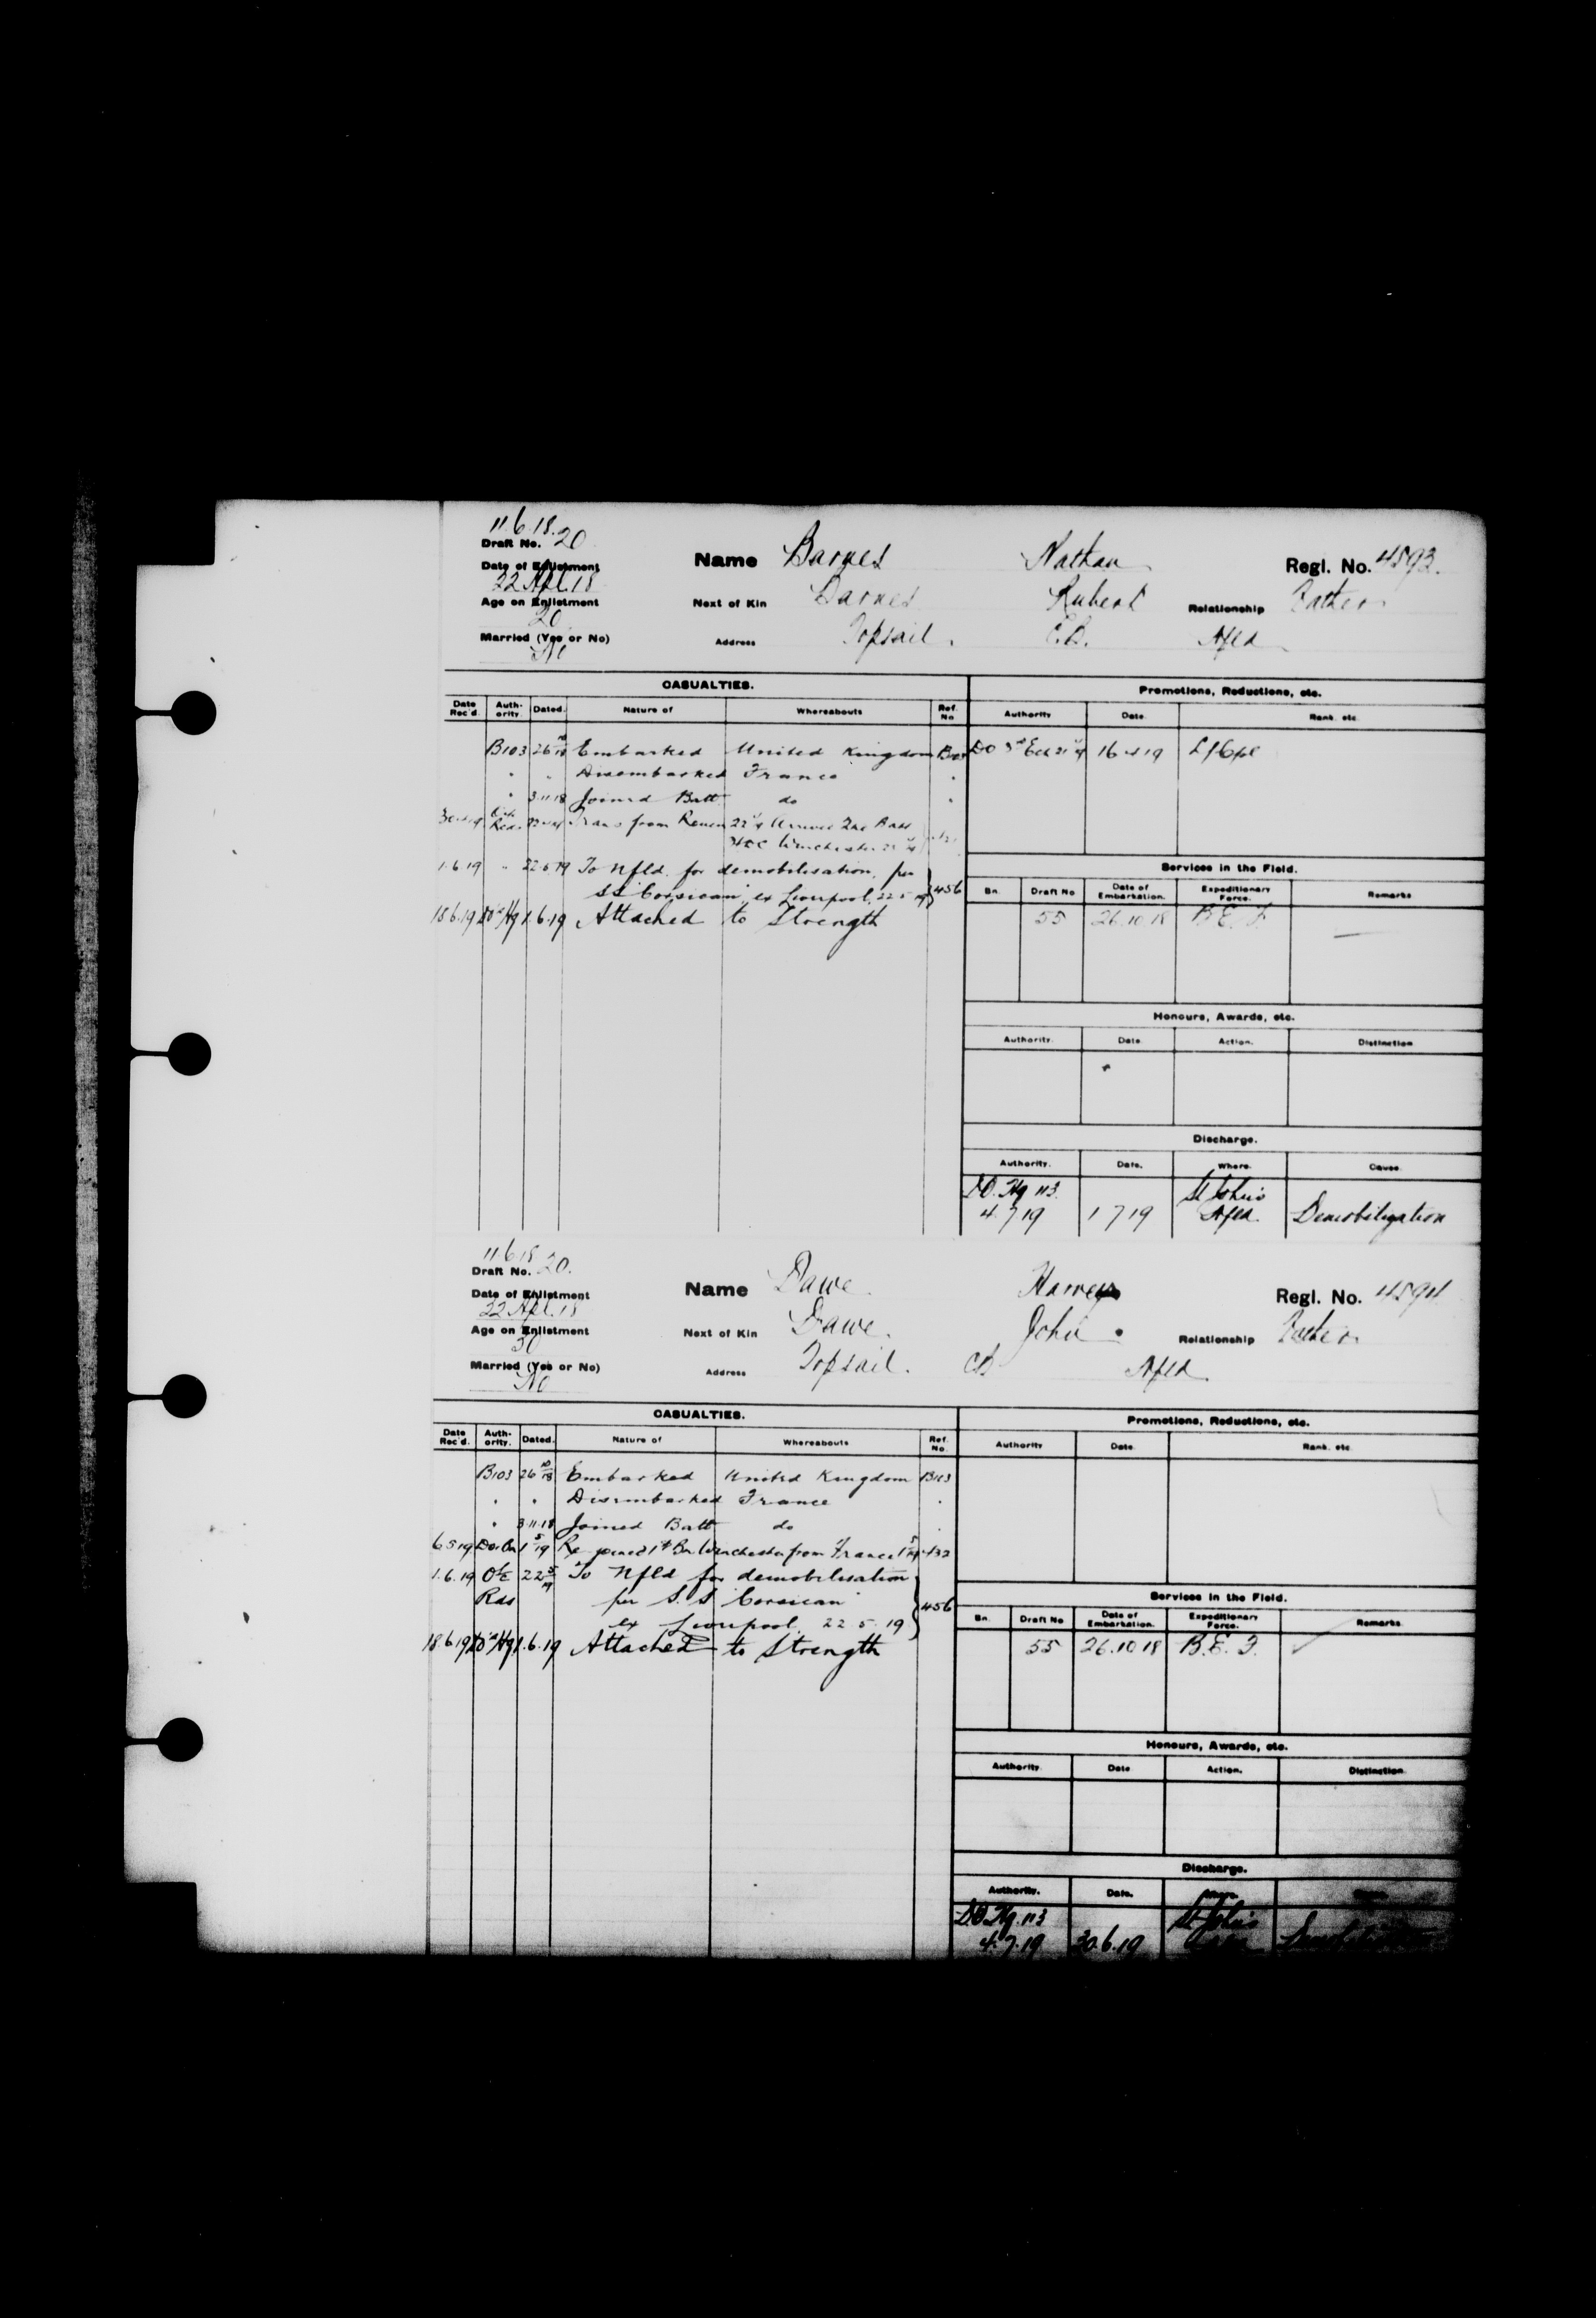 11.6.18.
Draft No. 20
Name Barnes Nathan Regl. No. 4593.
Date of Enlistment
22 Apl. 18
Age on Enlistment
20
Next of Kin Barnes Rubert Relationship Father
Married (Yes or No)
No
Address Topsail. C.B. Nfld
CASUALTIES. Promotions, Reductions, etc.
Date Rec'd. Authority. Dated. Nature of Whereabouts Ref. No. Authority Date Rank, etc.
B103 26 10/18 Embarked United Kingdom B103 16 4 19 L/Cpl
" " Disembarked France "
" 3.11.18 Joined Batt do "
Trans from Rouen
Winchester
1.6.19 " 22 5 19 To Nfld. for demobilisation, per
SS "Corsican" ex Liverpool, 22 5 19 456
18.6.19 1.6.19 Attached to Strength
Services in the Field.
Bn. Draft No Date of Embarkation. Expeditionary Force. Remarks
55 26.10.18 B.E.F.
Honours, Awards, etc.
Authority. Date Action. Distinction
Discharge.
Authority. Date. Where. Cause.
D.O. Hq 113. St John's
4.7.19 1 7 19 Nfld. Demobilization
11.6.18
Draft No. 20.
Name Dawe Harvey Regl. No. 4594
Date of Enlistment
22 Apl. 18
Age on Enlistment
30
Next of Kin Dawe. John Relationship Father
Married (Yes or No)
No
Address Topsail. CB Nfld.
CASUALTIES. Promotions, Reductions, etc.
Date Rec'd. Authority. Dated. Nature of Whereabouts Ref. No. Authority Date Rank, etc.
B103 26 10/18 Embarked United Kingdom B103
" " Disembarked France "
" 3.11.18 Joined Batt do "
6 5 19 1 5/19 Rejoined 1st Bn Winchester from France 432
1.6.19 22 5/19 To Nfld for demobilisation
per S.S. Corsican 456
ex Liverpool. 22 5. 19
18.6.19 1.6.19 Attached to Strength
Services in the Field.
Bn. Draft No Date of Embarkation. Expeditionary Force. Remarks
55 26.10 18 B.E.F.
Honours, Awards, etc.
Authority. Date Action. Distinction
Discharge.
Authority. Date. Where.
D.O. Hq. 113 St John's
4.7.19 30.6.19